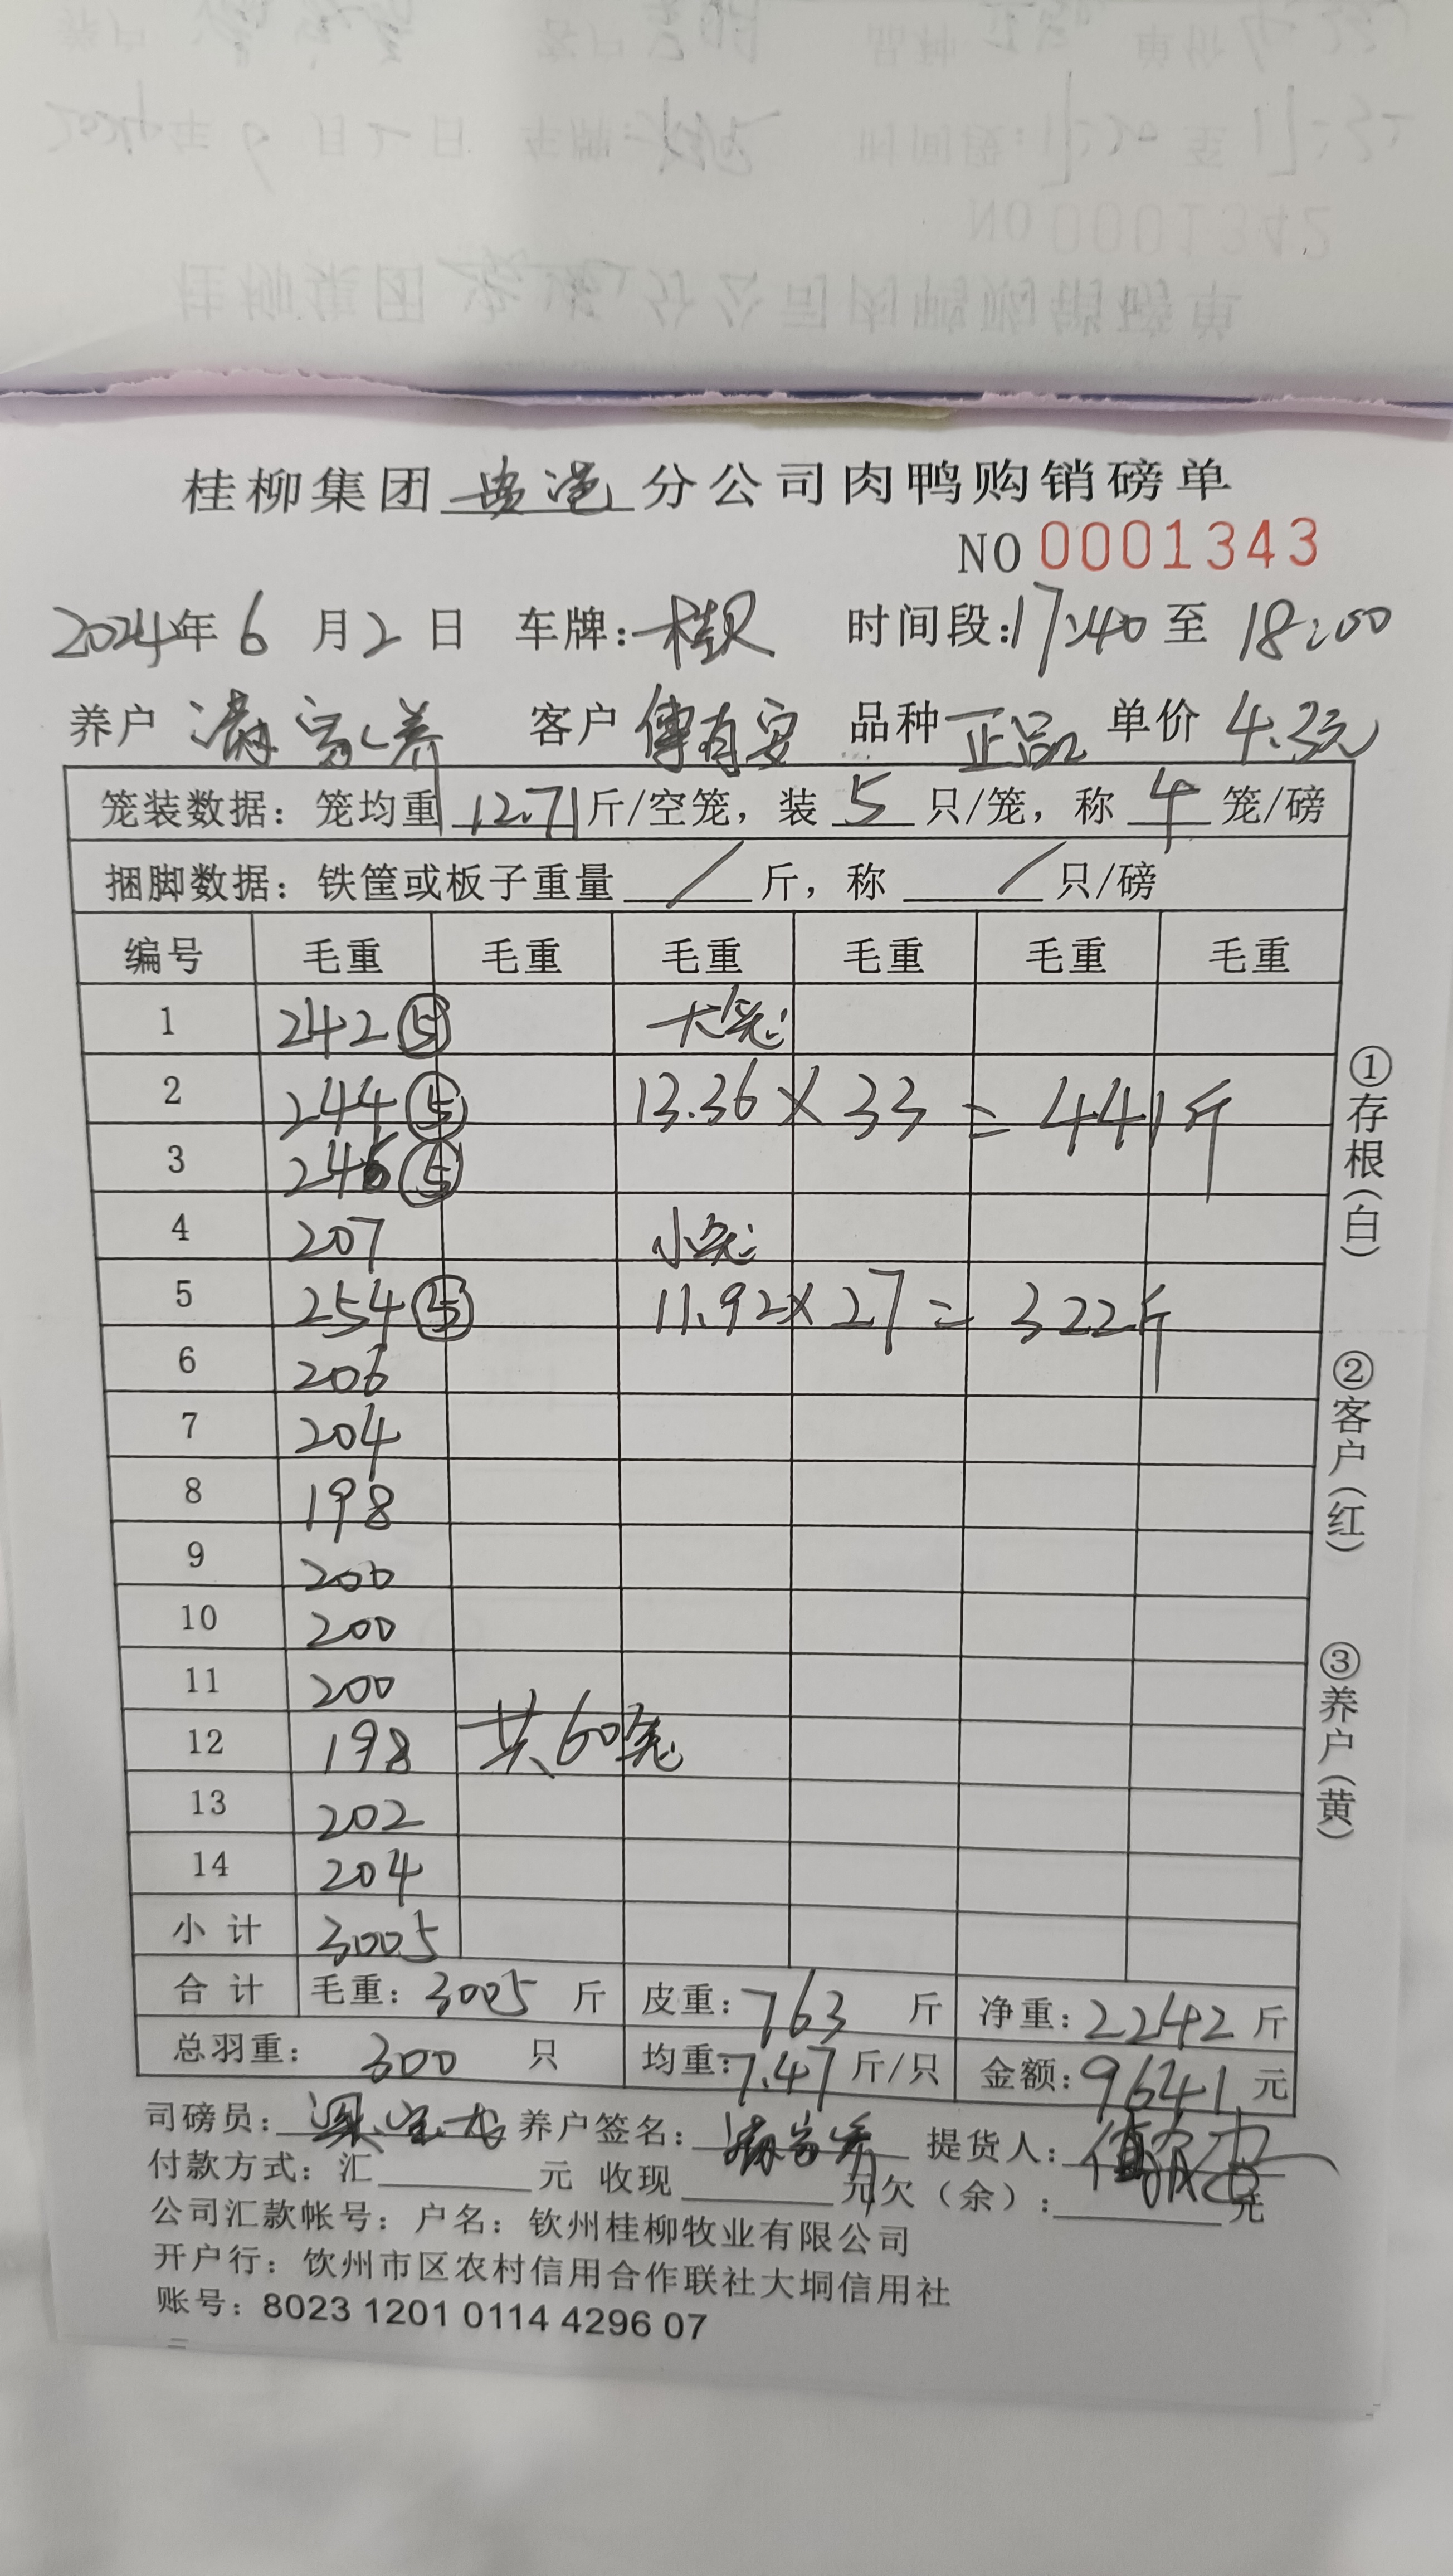 桂柳集团贵港分公司肉鸭购销磅单
NO 0001343
2024年6月2日 车牌: 时间段:17:40至18:00
养户 客户 傅有安 品种 正品 单价 4.3元
笼装数据：笼均重 12.71 斤/空笼，装 5 只/笼，称 4 笼/磅
捆脚数据：铁筐或板子重量 / 斤，称 / 只/磅
编号 毛重 毛重 毛重 毛重 毛重 毛重
1 242⑤ 大笼:
2 244⑤ 13.36×33=441斤
3 246⑤
4 207 小笼:
5 254⑤ 11.92×27=322斤
6 206
7 204
8 198
9 200
10 200
11 200
12 198 共60笼
13 202
14 204
小计 3005
合计 毛重：3005 斤 皮重：763 斤 净重：2242 斤
总羽重：300 只 均重：7.47 斤/只 金额：9641 元
司磅员： 养户签名： 提货人：
付款方式：汇 元 收现 元欠（余）： 元
公司汇款帐号：户名：钦州桂柳牧业有限公司
开户行：饮州市区农村信用合作联社大垌信用社
账号：8023 1201 0114 4296 07
①存根(白)
②客户(红)
③养户(黄)